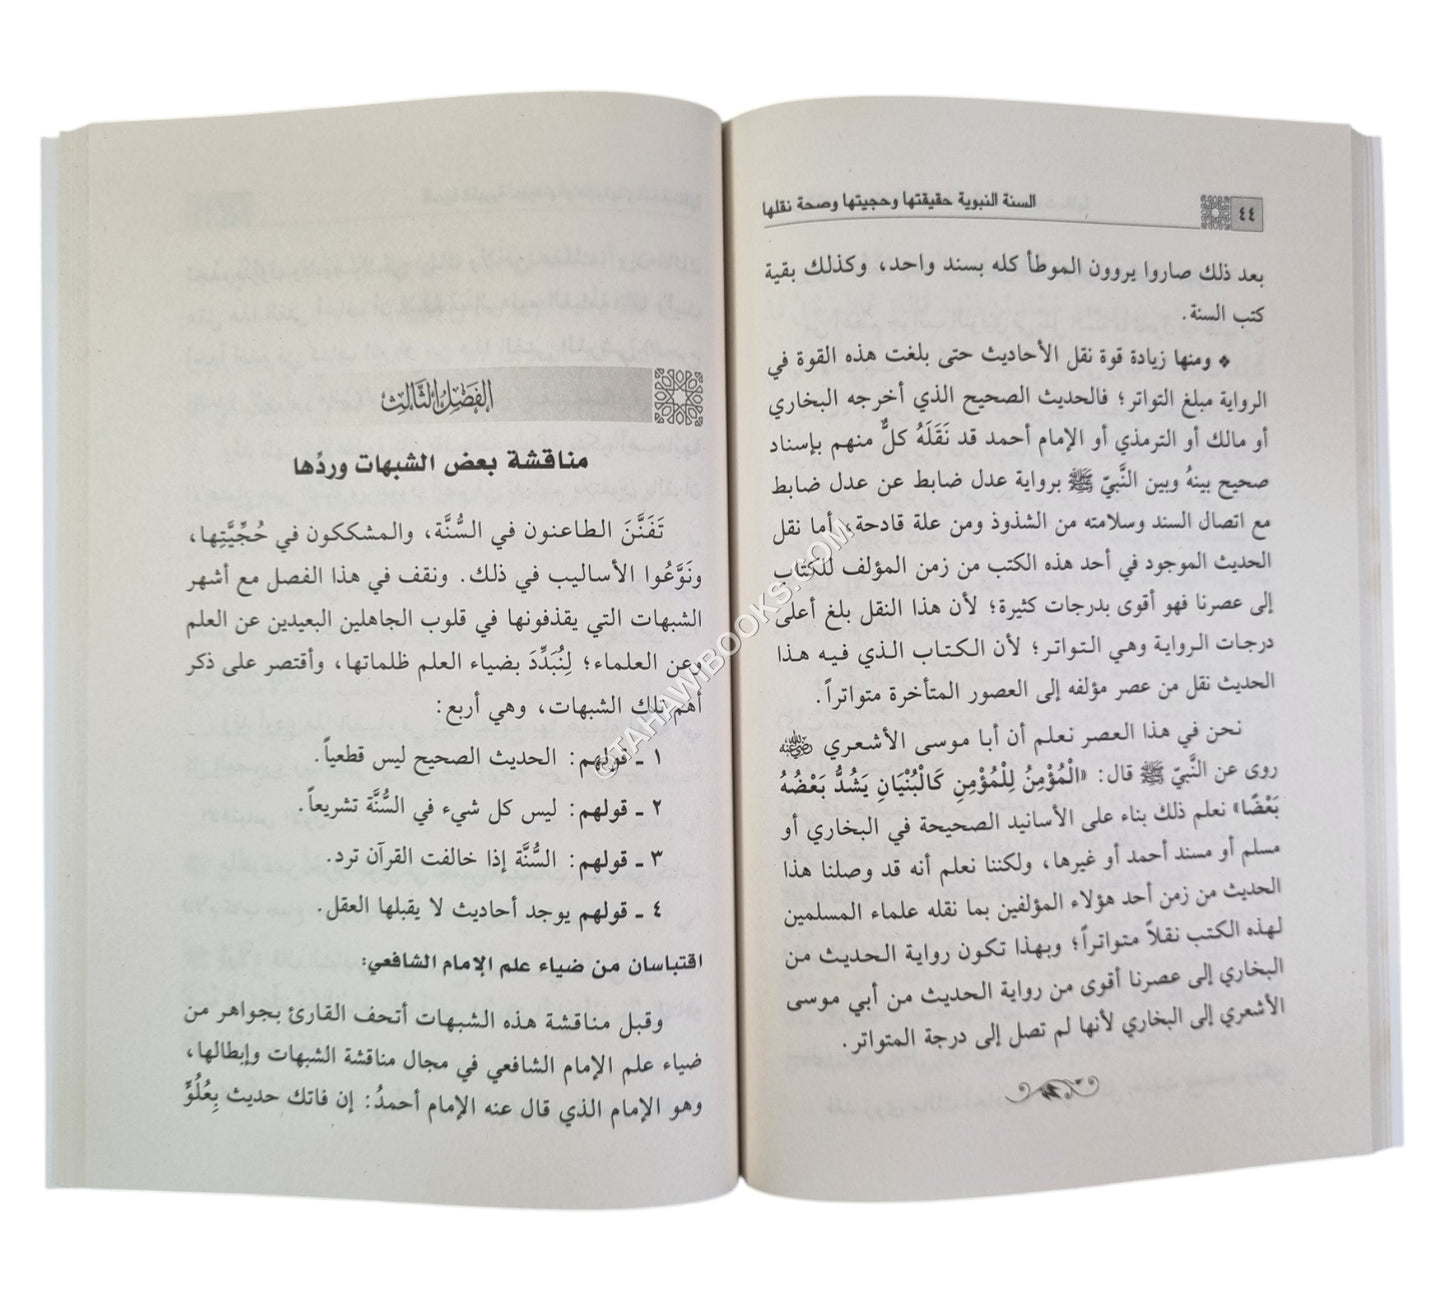 ٤٤
السنة النبوية حقيقتها وحجيتها وصحة نقلها
بعد ذلك صاروا يروون الموطأ كله بسند واحد، وكذلك بقية
كتب السنة.
❖ ومنها زيادة قوة نقل الأحاديث حتى بلغت هذه القوة في
الرواية مبلغ التواتر؛ فالحديث الصحيح الذي أخرجه البخاري
أو مالك أو الترمذي أو الإمام أحمد قد نَقَلَهُ كلٌّ منهم بإسناد
صحيح بينهُ وبين النَّبيّ ﷺ برواية عدل ضابط عن عدل ضابط
مع اتصال السند وسلامته من الشذوذ ومن علة قادحة، أما نقل
الحديث الموجود في أحد هذه الكتب من زمن المؤلف للكتاب
إلى عصرنا فهو أقوى بدرجات كثيرة؛ لأن هذا النقل بلغ أعلى
درجات الرواية وهي التواتر؛ لأن الكتاب الذي فيه هذا
الحديث نقل من عصر مؤلفه إلى العصور المتأخرة متواتراً.
نحن في هذا العصر نعلم أن أبا موسى الأشعري رضي الله عنه
روى عن النَّبيّ ﷺ قال: «الْمُؤْمِنُ لِلْمُؤْمِنِ كَالْبُنْيَانِ يَشُدُّ بَعْضُهُ
بَعْضًا» نعلم ذلك بناء على الأسانيد الصحيحة في البخاري أو
مسلم أو مسند أحمد أو غيرها، ولكننا نعلم أنه قد وصلنا هذا
الحديث من زمن أحد هؤلاء المؤلفين بما نقله علماء المسلمين
لهذه الكتب نقلاً متواتراً؛ وبهذا تكون رواية الحديث من
البخاري إلى عصرنا أقوى من رواية الحديث من أبي موسى
الأشعري إلى البخاري لأنها لم تصل إلى درجة المتواتر.
الفَصْلُ الثَّالِث
مناقشة بعض الشبهات وردِّها
تَفَنَّنَ الطاعنون في السُّنَّة، والمشككون في حُجِّيَّتِها،
ونَوَّعُوا الأساليب في ذلك. ونقف في هذا الفصل مع أشهر
الشبهات التي يقذفونها في قلوب الجاهلين البعيدين عن العلم
وعن العلماء؛ لِنُبَدِّدَ بضياء العلم ظلماتها، وأقتصر على ذكر
أهم تلك الشبهات، وهي أربع:
١ ـ قولهم: الحديث الصحيح ليس قطعياً.
٢ ـ قولهم: ليس كل شيء في السُّنَّة تشريعاً.
٣ ـ قولهم: السُّنَّة إذا خالفت القرآن ترد.
٤ ـ قولهم يوجد أحاديث لا يقبلها العقل.
اقتباسان من ضياء علم الإمام الشافعي:
وقبل مناقشة هذه الشبهات أتحف القارئ بجواهر من
ضياء علم الإمام الشافعي في مجال مناقشة الشبهات وإبطالها،
وهو الإمام الذي قال عنه الإمام أحمدُ: إن فاتك حديث بِعُلُوٍّ
©TAHAWIBOOKS.COM